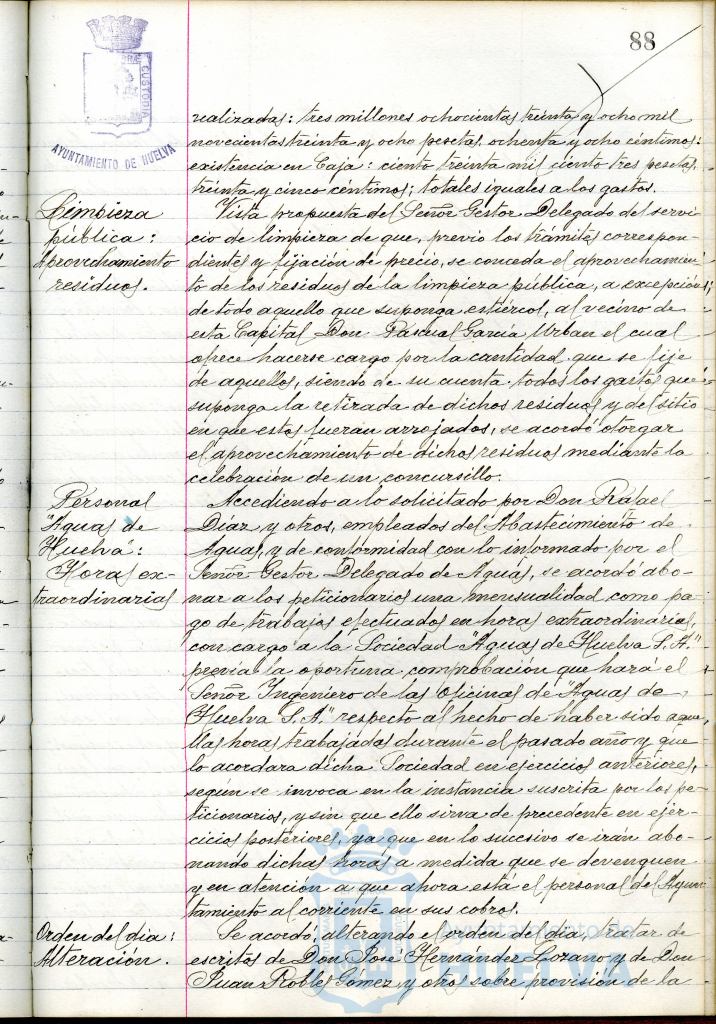 88
CUSTODIA
AYUNTAMIENTO DE HUELVA
realizadas: tres millones ochocientas treinta y ocho mil
novecientas treinta y ocho pesetas, ochenta y ocho céntimos:
existencia en Caja: ciento treinta mil ciento tres pesetas,
treinta y cinco céntimos; totales iguales a los gastos.
Limpieza
pública:
Aprovechamiento
residuos.
Vista propuesta del Señor Gestor Delegado del servi-
cio de limpieza de que, previo los trámites correspon-
dientes y fijación de precio, se conceda el aprovechamien-
to de los residuos de la limpieza pública, a excepción
de todo aquello que suponga estiércol, al vecino de
esta Capital Don Pascual García Urban el cual
ofrece hacerse cargo por la cantidad que se fije
de aquellos, siendo de su cuenta todos los gastos que
suponga la retirada de dichos residuos y del sitio
en que estos fueran arrojados, se acordó otorgar
el aprovechamiento de dichos residuos mediante la
celebración de un concursillo.
Personal
"Aguas de
Huelva":
Horas ex-
traordinarias
Accediendo a lo solicitado por Don Rafael
Diaz y otros, empleados del Abastecimiento de
Aguas, y de conformidad con lo informado por el
Señor Gestor Delegado de Aguas, se acordó abo-
nar a los peticionarios una mensualidad como pa-
go de trabajos efectuados en horas extraordinarias,
con cargo a la Sociedad "Aguas de Huelva S.A."
previa la oportuna comprobación que hará el
Señor Ingeniero de las Oficinas de "Aguas de
Huelva S.A." respecto al hecho de haber sido aque-
llas horas trabajadas durante el pasado año y que
lo acordara dicha Sociedad en ejercicios anteriores,
según se invoca en la instancia suscrita por los pe-
ticionarios, y sin que ello sirva de precedente en ejer-
cicios posteriores, ya que en lo sucesivo se irán abo-
nando dichas horas a medida que se devenguen
y en atención a que ahora está el personal del Ayun-
tamiento al corriente en sus cobros.
Orden del dia:
Alteración.
Se acordó, alterando el orden del dia, tratar de
escritos de Don José Hernández Lozano y de Don
Juan Robles Gómez y otros sobre provisión de la
Ayuntamiento de
HUELVA